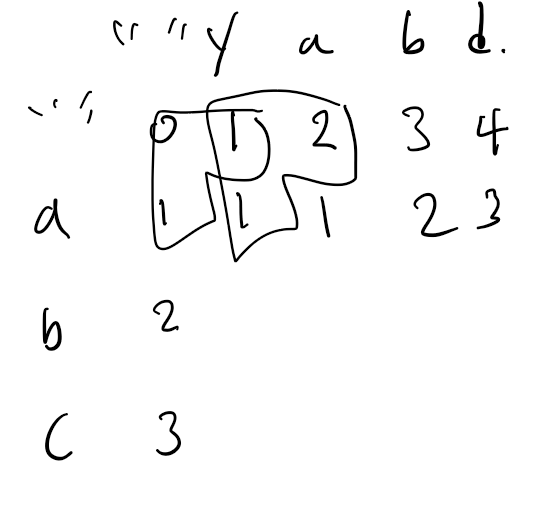 " " y a b d.
" " 0 1 2 3 4
a 1 1 1 2 3
b 2
c 3